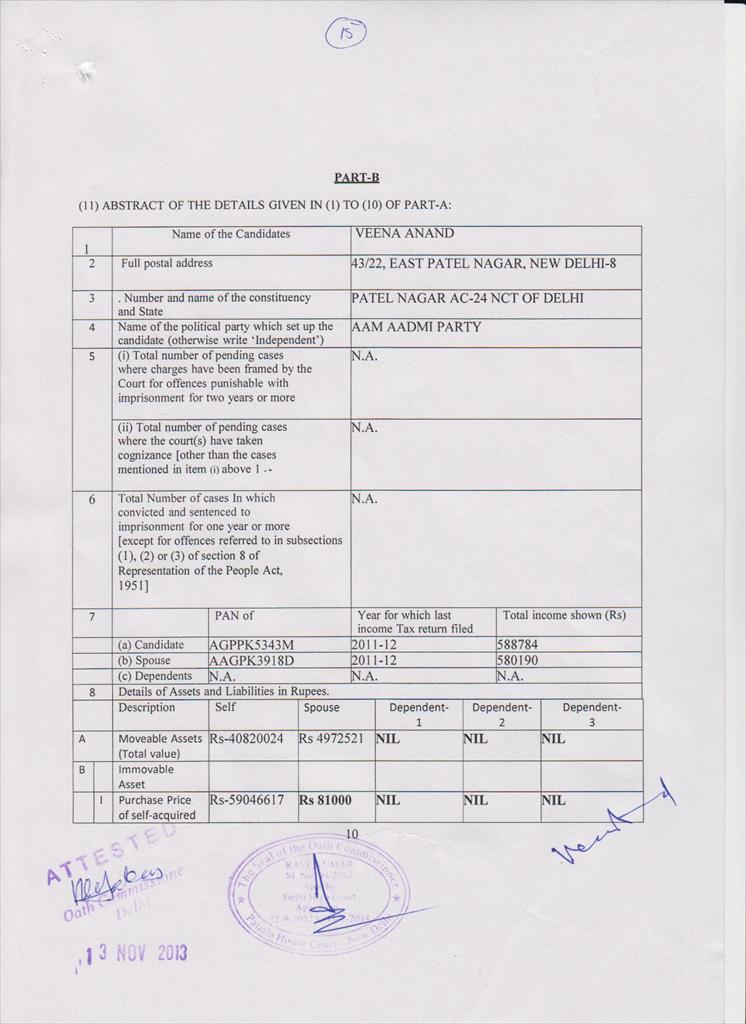 15
PART-B
(11) ABSTRACT OF THE DETAILS GIVEN IN (1) TO (10) OF PART-A:
1 Name of the Candidates VEENA ANAND
2 Full postal address 43/22, EAST PATEL NAGAR, NEW DELHI-8
3 . Number and name of the constituency PATEL NAGAR AC-24 NCT OF DELHI
and State
4 Name of the political party which set up the AAM AADMI PARTY
candidate (otherwise write ‘Independent’)
5 (i) Total number of pending cases N.A.
where charges have been framed by the
Court for offences punishable with
imprisonment for two years or more
(ii) Total number of pending cases N.A.
where the court(s) have taken
cognizance [other than the cases
mentioned in item (i) above 1 --
6 Total Number of cases In which N.A.
convicted and sentenced to
imprisonment for one year or more
[except for offences referred to in subsections
(1), (2) or (3) of section 8 of
Representation of the People Act,
1951]
7 PAN of Year for which last Total income shown (Rs)
income Tax return filed
(a) Candidate AGPPK5343M 2011-12 588784
(b) Spouse AAGPK3918D 2011-12 580190
(c) Dependents N.A. N.A. N.A.
8 Details of Assets and Liabilities in Rupees.
Description Self Spouse Dependent- Dependent- Dependent-
1 2 3
A Moveable Assets Rs-40820024 Rs 4972521 NIL NIL NIL
(Total value)
B Immovable
Asset
I Purchase Price Rs-59046617 Rs 81000 NIL NIL NIL
of self-acquired
10
ATTESTED
Oath Commissione
Delhi
13 NOV 2013
The Seal of the Oath Commissioner
Delhi
Court
Patiala House Courts, New Delhi